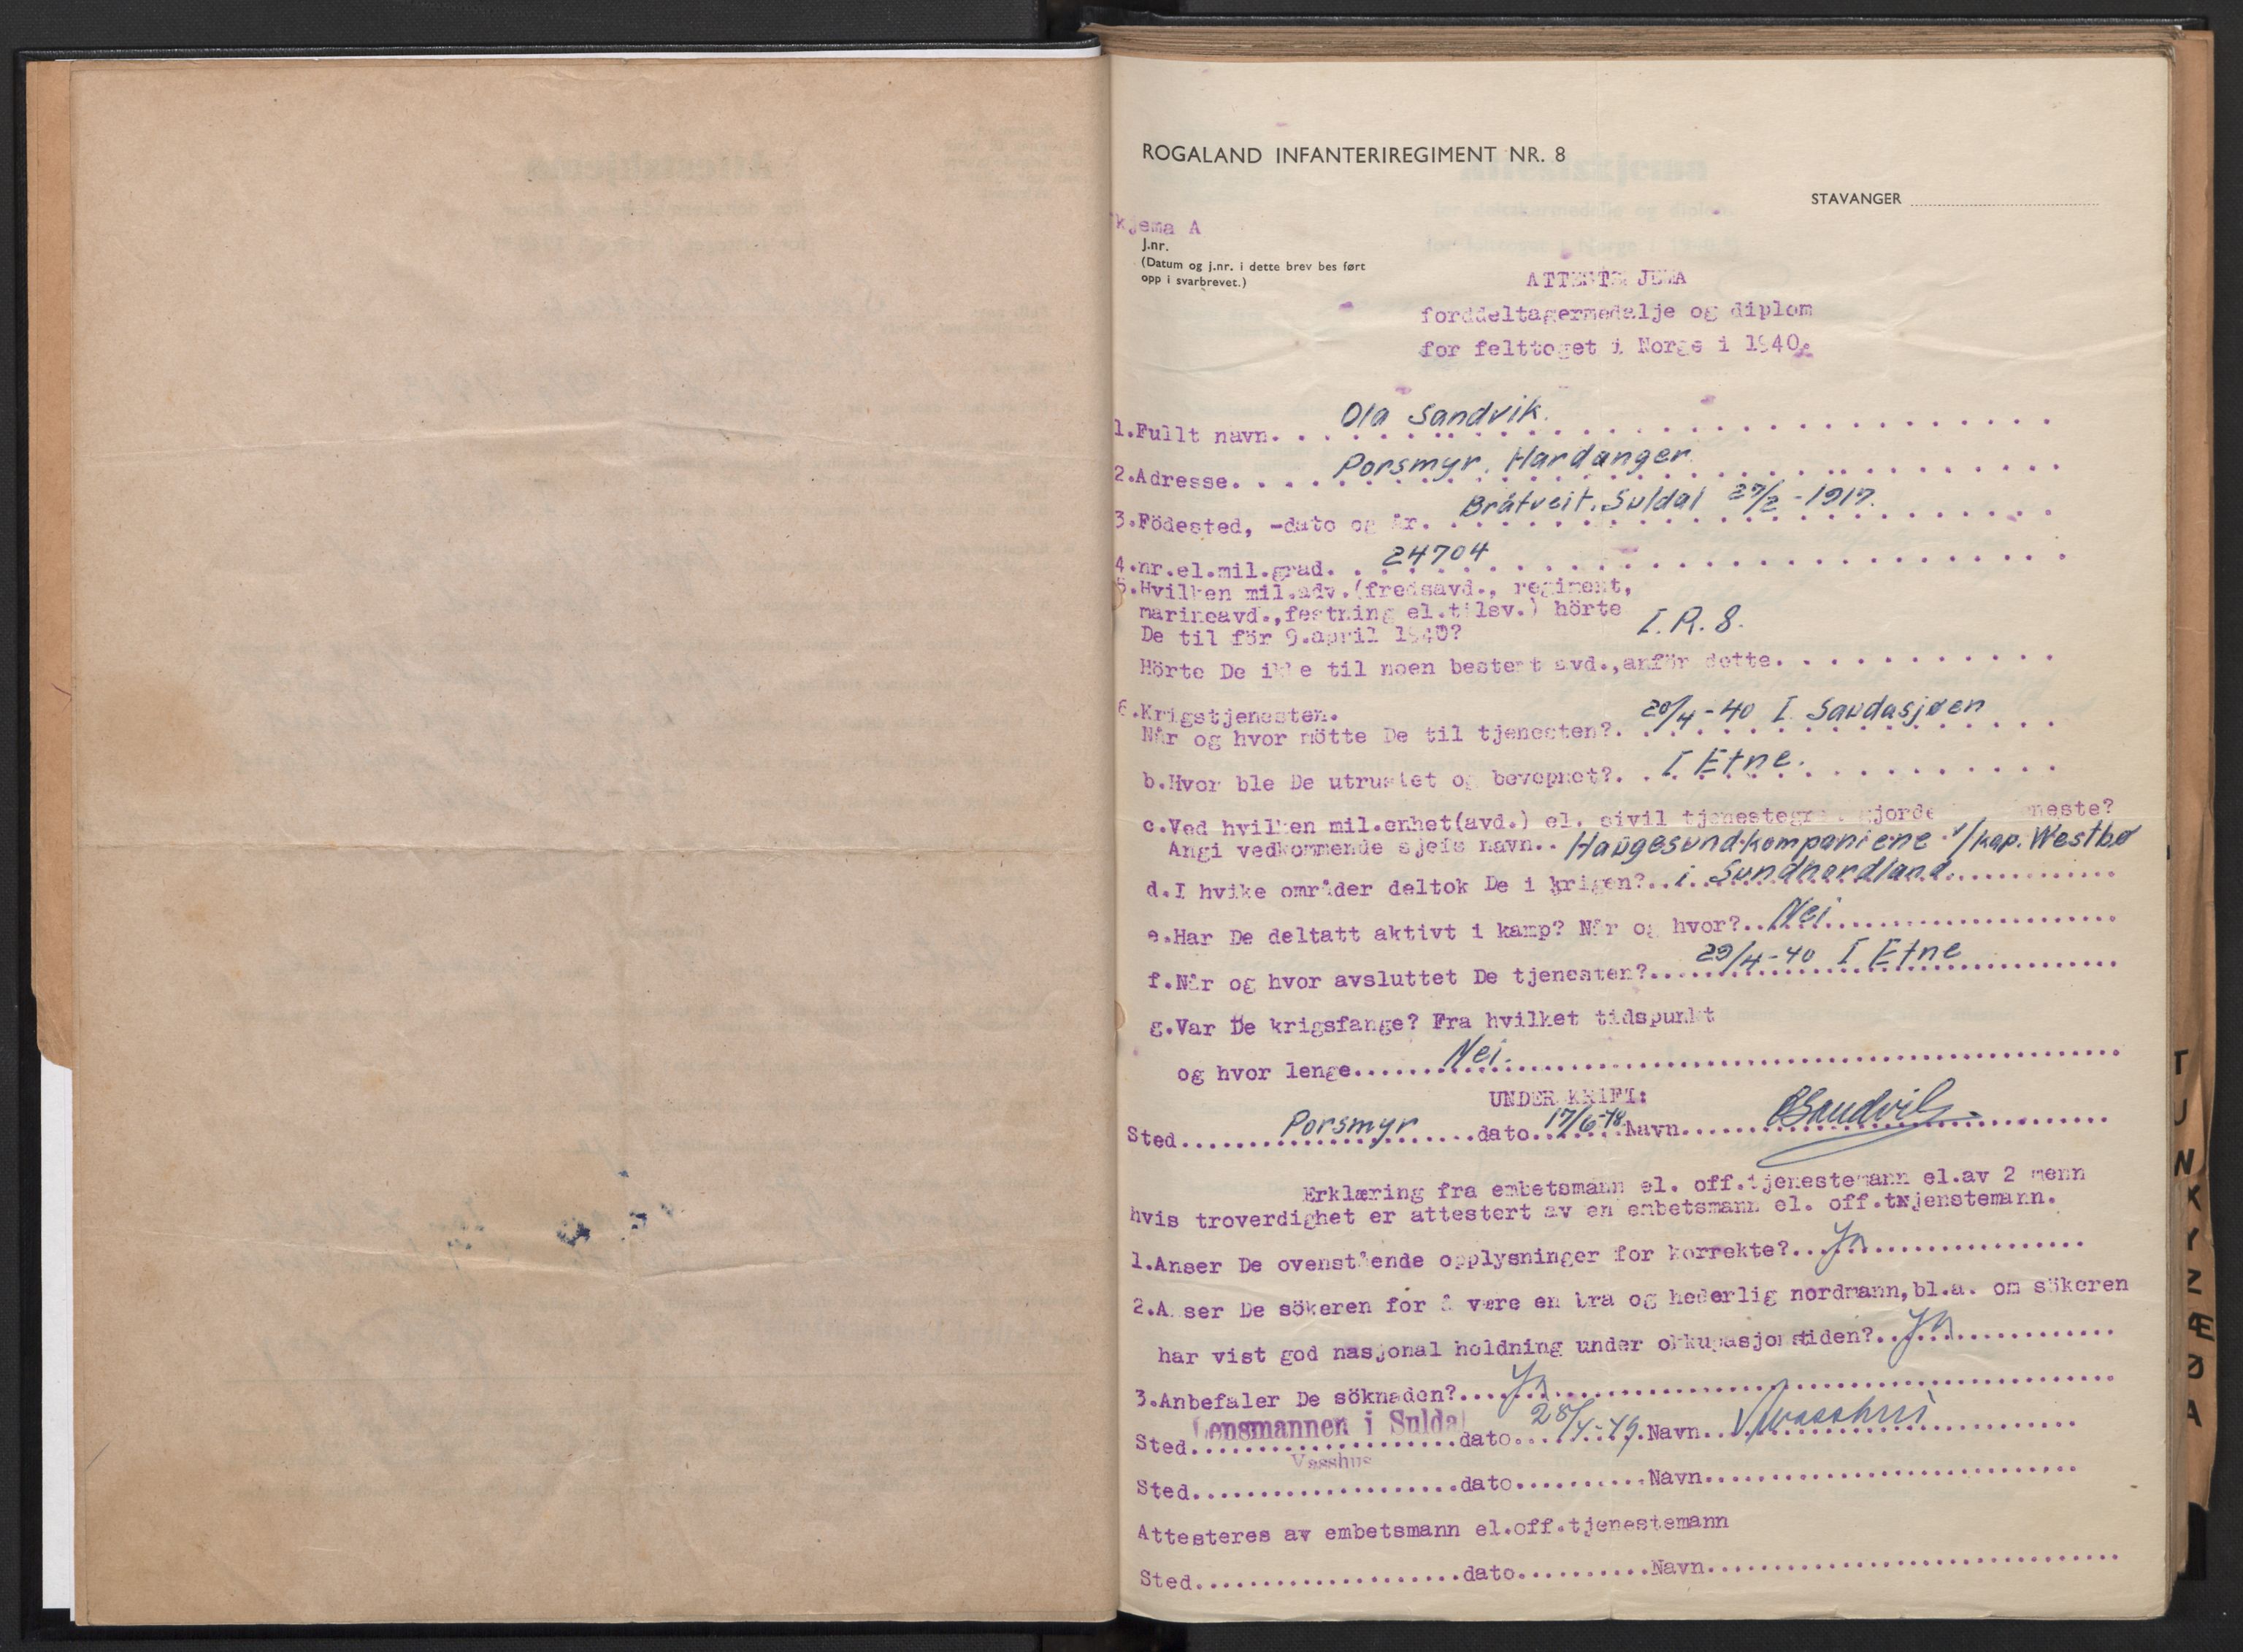 ROGALAND INFANTERIREGIMENT NR. 8
STAVANGER
kjema A
J.nr.
(Datum og j.nr. i dette brev bes ført
opp i svarbrevet.)
forddeltagermedalje og diplom
for felttoget i Norge i 1940.
1.Fullt navn. Ola Sandvik.
2.Adresse. Porsmyr. Hardanger.
3.Födested, -dato og år. Bråtveit. Suldal 27/2 - 1917.
4.nr.el.mil.grad. 24704
5.Hvilken mil.adv.(fredsavd., regiment,
marineavd.,festning el.tilsv.) hörte
De til för 9.april 1940? I.R.8.
Hörte De ikke til noen bestemt avd.,anför dette.
6.Krigstjenesten.
Når og hvor mötte De til tjenesten?. 20/4-40 I Saudasjøen
b.Hvor ble De utrustet og bevepnet?. I Etne.
c.Ved hvilken mil.enhet(avd.) el. civil tjenestegr gjorde neste?
Angi vedkommende sjefs navn.. Haugesund-kompaniene v/kap. Westbø
d.I hvike områder deltok De i krigen?.. i Sundhordland.
e.Har De deltatt aktivt i kamp? Når og hvor?.. Nei
f.Når og hvor avsluttet De tjenesten?.. 29/4-40 I Etne
g.Var De krigsfange? Fra hvilket tidspunkt
og hvor lenge.. Nei.
UNDERSKRIFT:
Sted.. Porsmyr dato.. 17/6-48 Navn.. OSandvik
Erklæring fra embetsmann el. off.tjenestemann el.av 2 menn
hvis troverdighet er attestert av en embetsmann el. off.txjenstemann.
1.Anser De ovenstående opplysninger for korrekte?.. Ja
2.Anser De sökeren for å være en bra og hederlig nordmann,bl.a. om sökeren
har vist god nasjonal holdning under okkupasjonstiden?.. Ja
3.Anbefaler De söknaden?.. Ja
Lensmannen i Suldal
Sted.. dato.. 28/4-49. Navn.. Vasshus
Vasshus
Sted.. dato.. Navn..
Attesteres av embetsmann el.off.tjenestemann
Sted.. dato.. Navn..
T
U
N
K
Y
Z
Æ
Ø
A